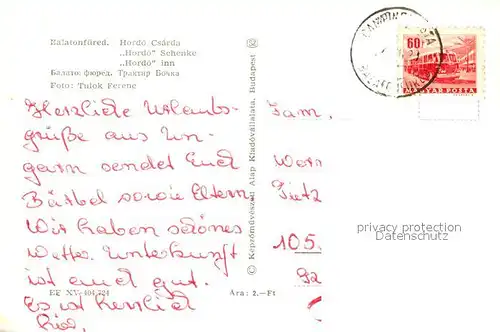 Balatonfüred. Hordó Csárda
„Hordó" Schenke
„Hordó" inn
Балатонфюред. Трактир Бочка
Foto: Tulok Ferenc
Herzliche Urlaubs-
grüße aus Un-
garn sendet Euch
Bärbel sowie Eltern
Wir haben schönes
Wetter. Unterkunft
ist auch gut.
Es ist herrlich
hier.
EF XV-401/724
Ára: 2.-Ft
© Képzőművészeti Alap Kiadóvállalata, Budapest
CAMPING POSTA
60f
MAGYAR POSTA
Fam.
Tietz
105.
privacy protection
Datenschutz